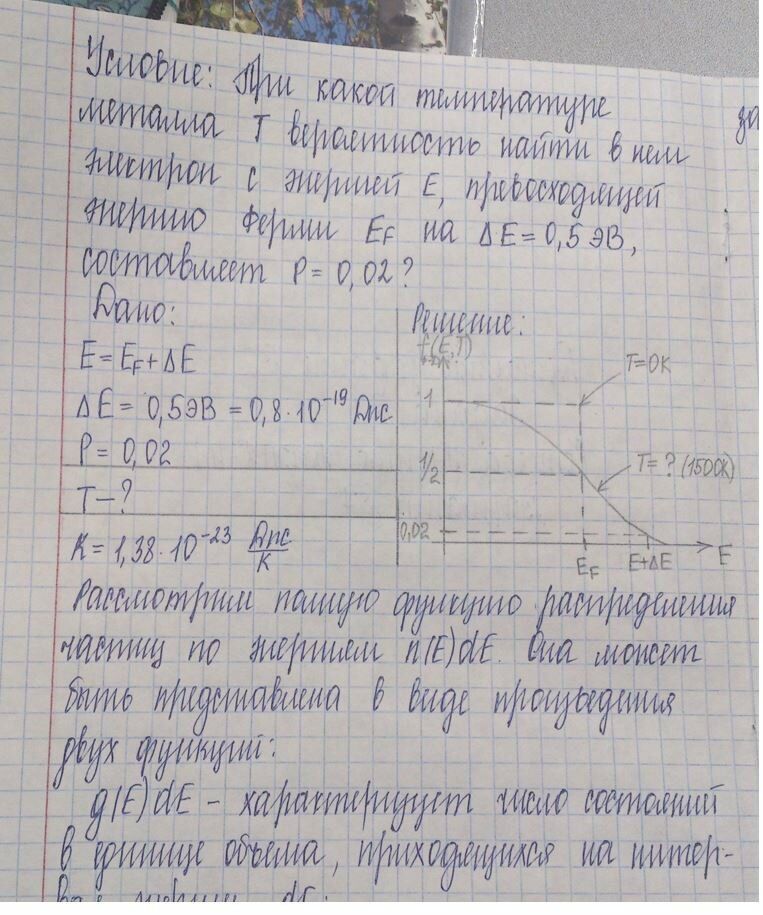 за
Условие: При какой температуре
металла T вероятность найти в нем
электрон с энергией E, превосходящей
энергию Ферми EF на ΔE = 0,5 эВ,
составляет P = 0,02?
Дано:
E = EF + ΔE
ΔE = 0,5 эВ = 0,8 · 10⁻¹⁹ Дж
P = 0,02
T — ?
K = 1,38 · 10⁻²³ Дж/К
Решение:
f(E,T)
T=0K
1
1/2
T=? (1500K)
0,02
EF
E+ΔE
E
Рассмотрим полную функцию распределения
частиц по энергиям n(E)dE. Она может
быть представлена в виде произведения
двух функций:
g(E)dE – характеризует число состояний
в единице объема, приходящихся на интер-
dE;